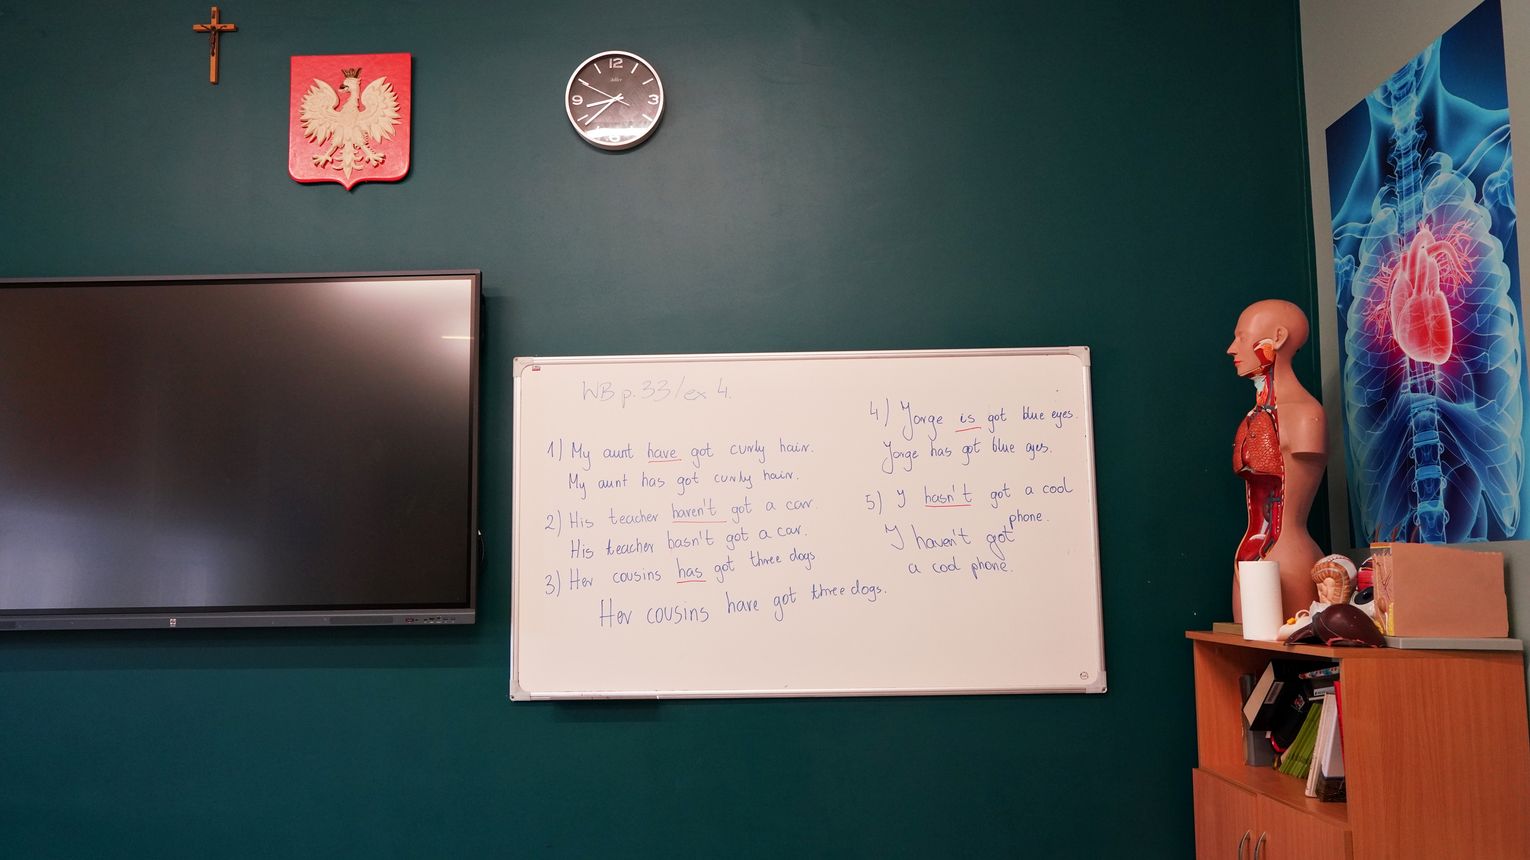 12
9
3
6
WB p. 33/ex 4.
1) My aunt have got curly hair.
My aunt has got curly hair.
2) His teacher haven't got a car.
His teacher hasn't got a car.
3) Her cousins has got three dogs
Her cousins have got three dogs.
4) Jorge is got blue eyes.
Jorge has got blue eyes.
5) I hasn't got a cool
phone.
I haven't got
a cool phone.